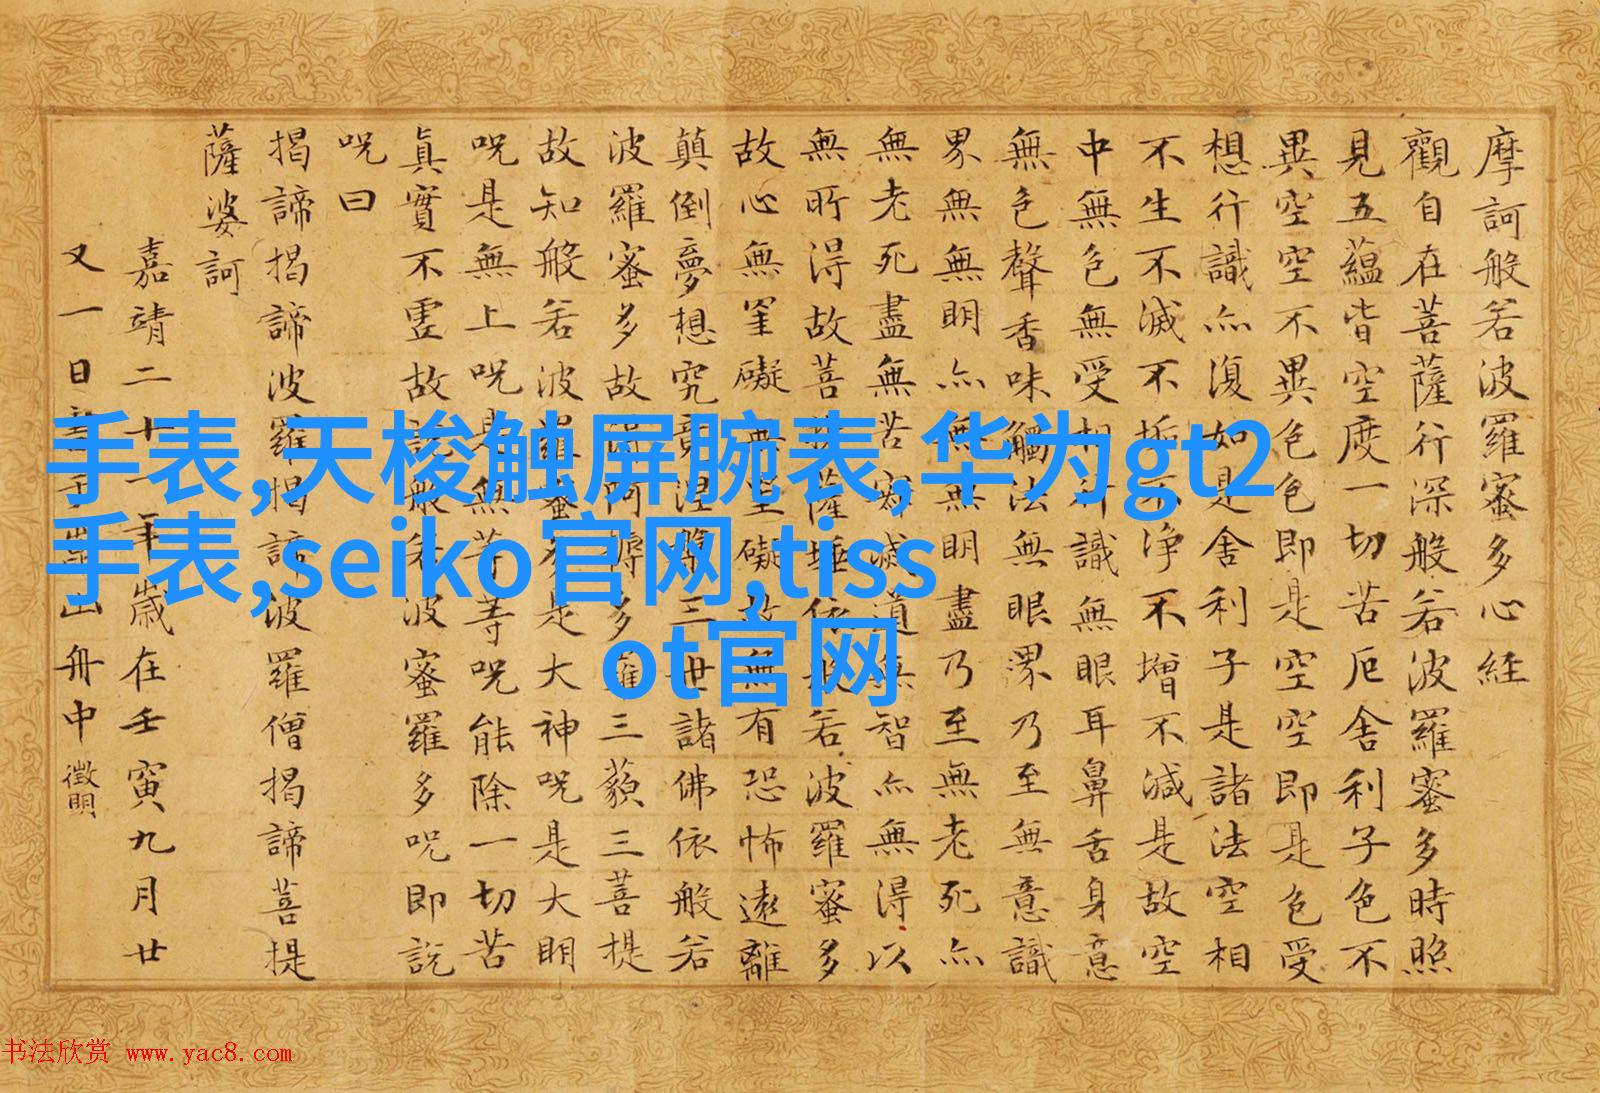 摩訶般若波羅蜜多心経
觀自在菩薩行深般若波羅蜜多時照
見五蘊皆空度一切苦厄舍利子色不
異空空不異色色即是空空即是色受
想行識亦復如是舍利子是諸法空相
不生不滅不垢不淨不增不減是故空
中無色無受想行識無眼耳鼻舌身意
無色聲香味觸法無眼界乃至無意識
界無無明亦無無明盡乃至無老死亦
無老死盡無苦寂滅道無智亦無得以
無所得故菩提薩埵依般若波羅蜜多
故心無罣礙無罣礙故無有恐怖遠離
顛倒夢想究竟涅槃三世諸佛依般若
波羅蜜多故得阿耨多羅三藐三菩提
故知般若波羅蜜多是大神呪是大明
呪是無上呪是無等等呪能除一切苦
真實不虛故說般若波蜜羅多呪即説
呪曰
揭諦揭諦波羅揭諦波羅僧揭諦菩提
薩婆訶
嘉靖二十一年歲在壬寅九月廿
又一日山舟中 徵明
手表,天梭触屏腕表,华为gt2
手表,seiko官网,tiss
ot官网
书法欣赏 www.yac8.com